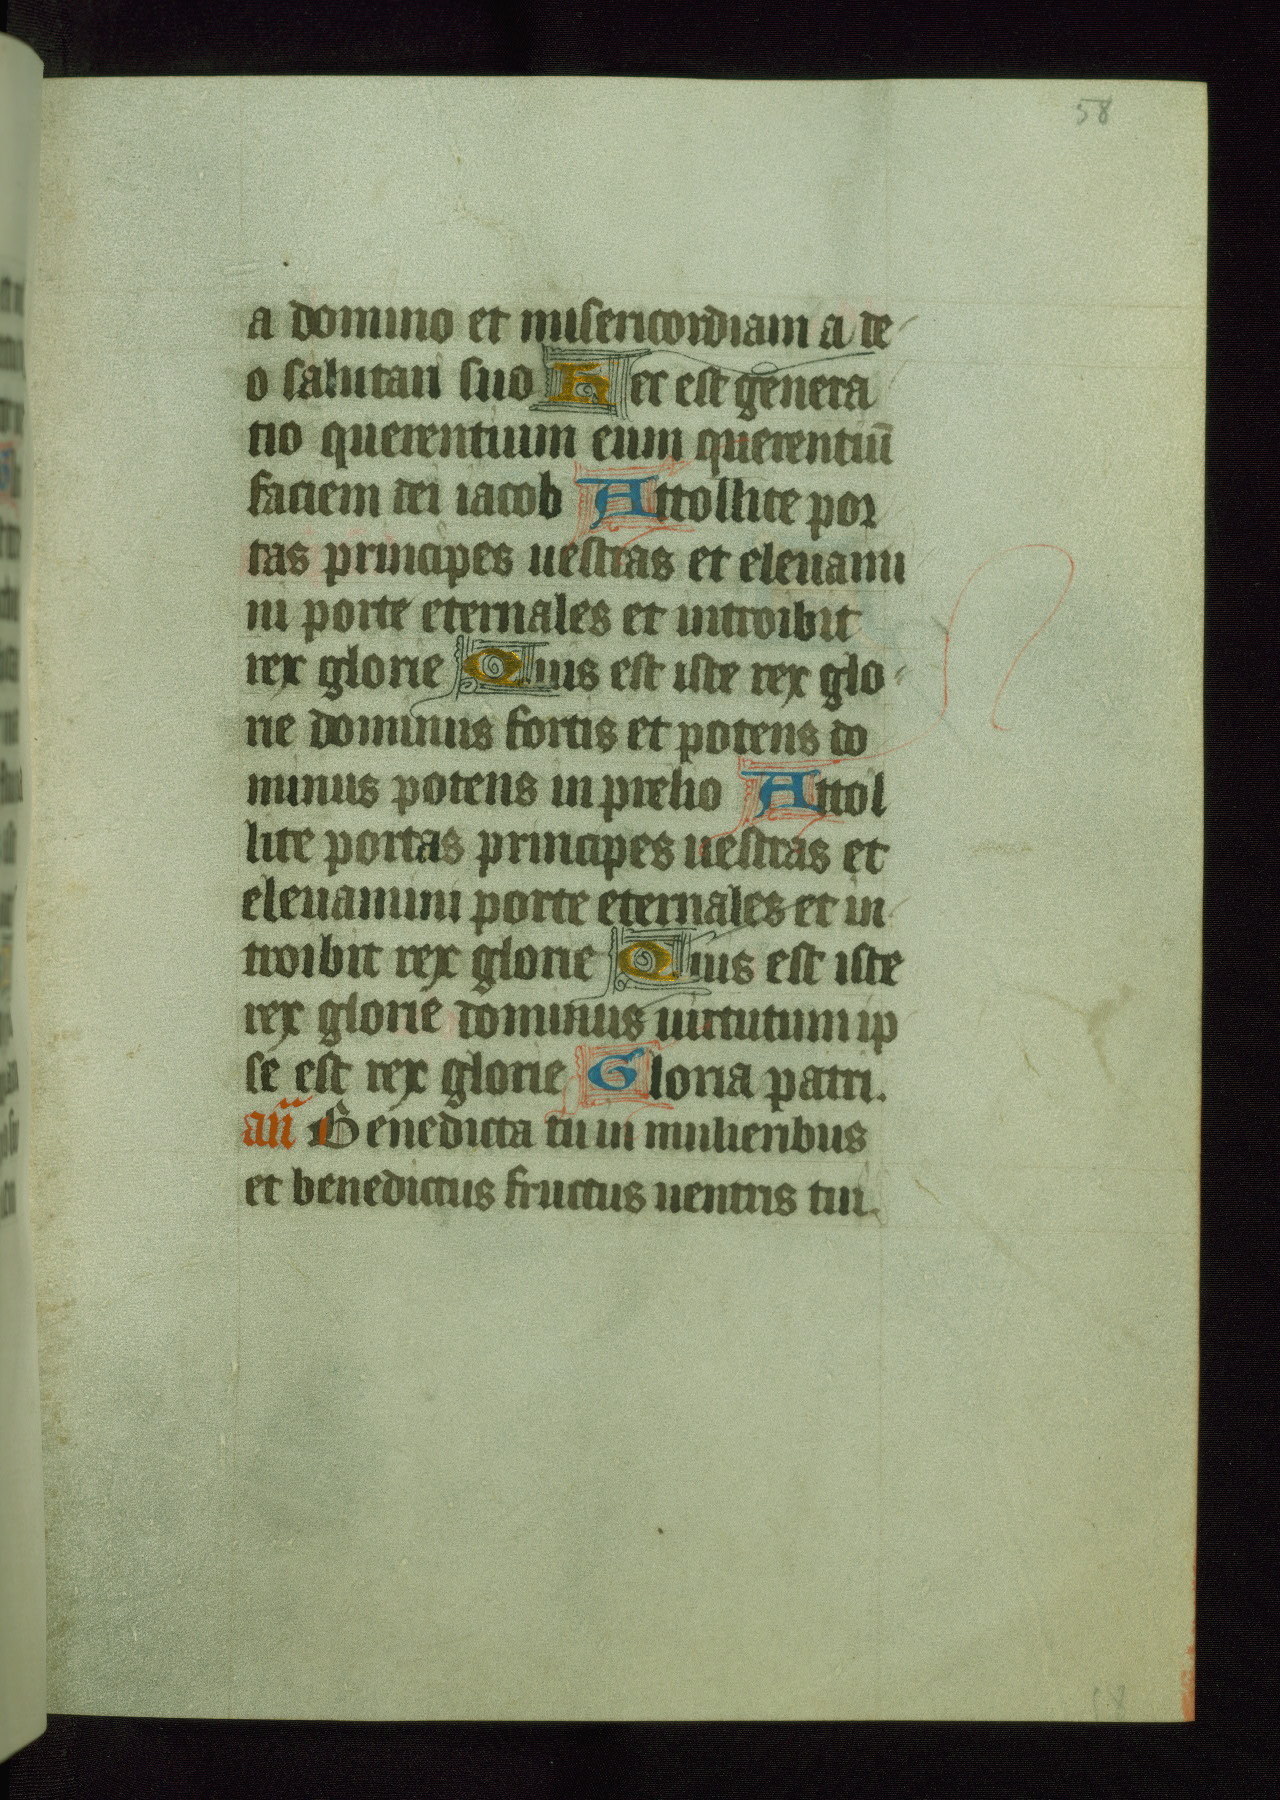 58
a domino et misericordiam a de
o salutari suo Hec est genera
tio querentium eum querentiū
faciem dei iacob Attollite por
tas principes uestras et eleuami
ni porte eternales et introibit
rex glorie Quis est iste rex glo
rie dominus fortis et potens do
minus potens in prelio Attol
lite portas principes uestras et
eleuamini porte eternales et in
troibit rex glorie Quis est iste
rex glorie dominus uirtutum ip
se est rex glorie Gloria patri.
an̄ Benedicta tu in mulieribus
et benedictus fructus uentris tui.